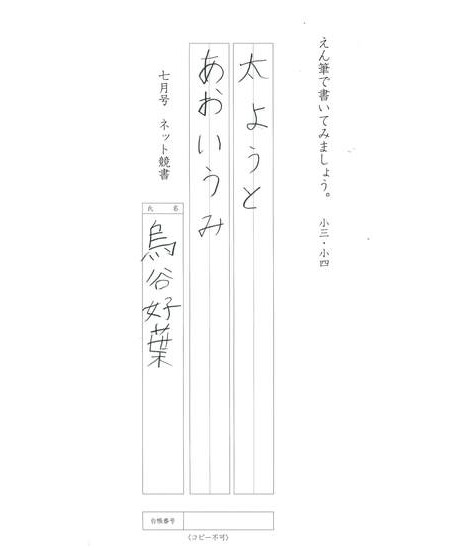 えん筆で書いてみましょう。 小三・小四
太ようと
あおいうみ
七月号 ネット競書
氏名
烏谷好葉
会機番号
(コピー不可)